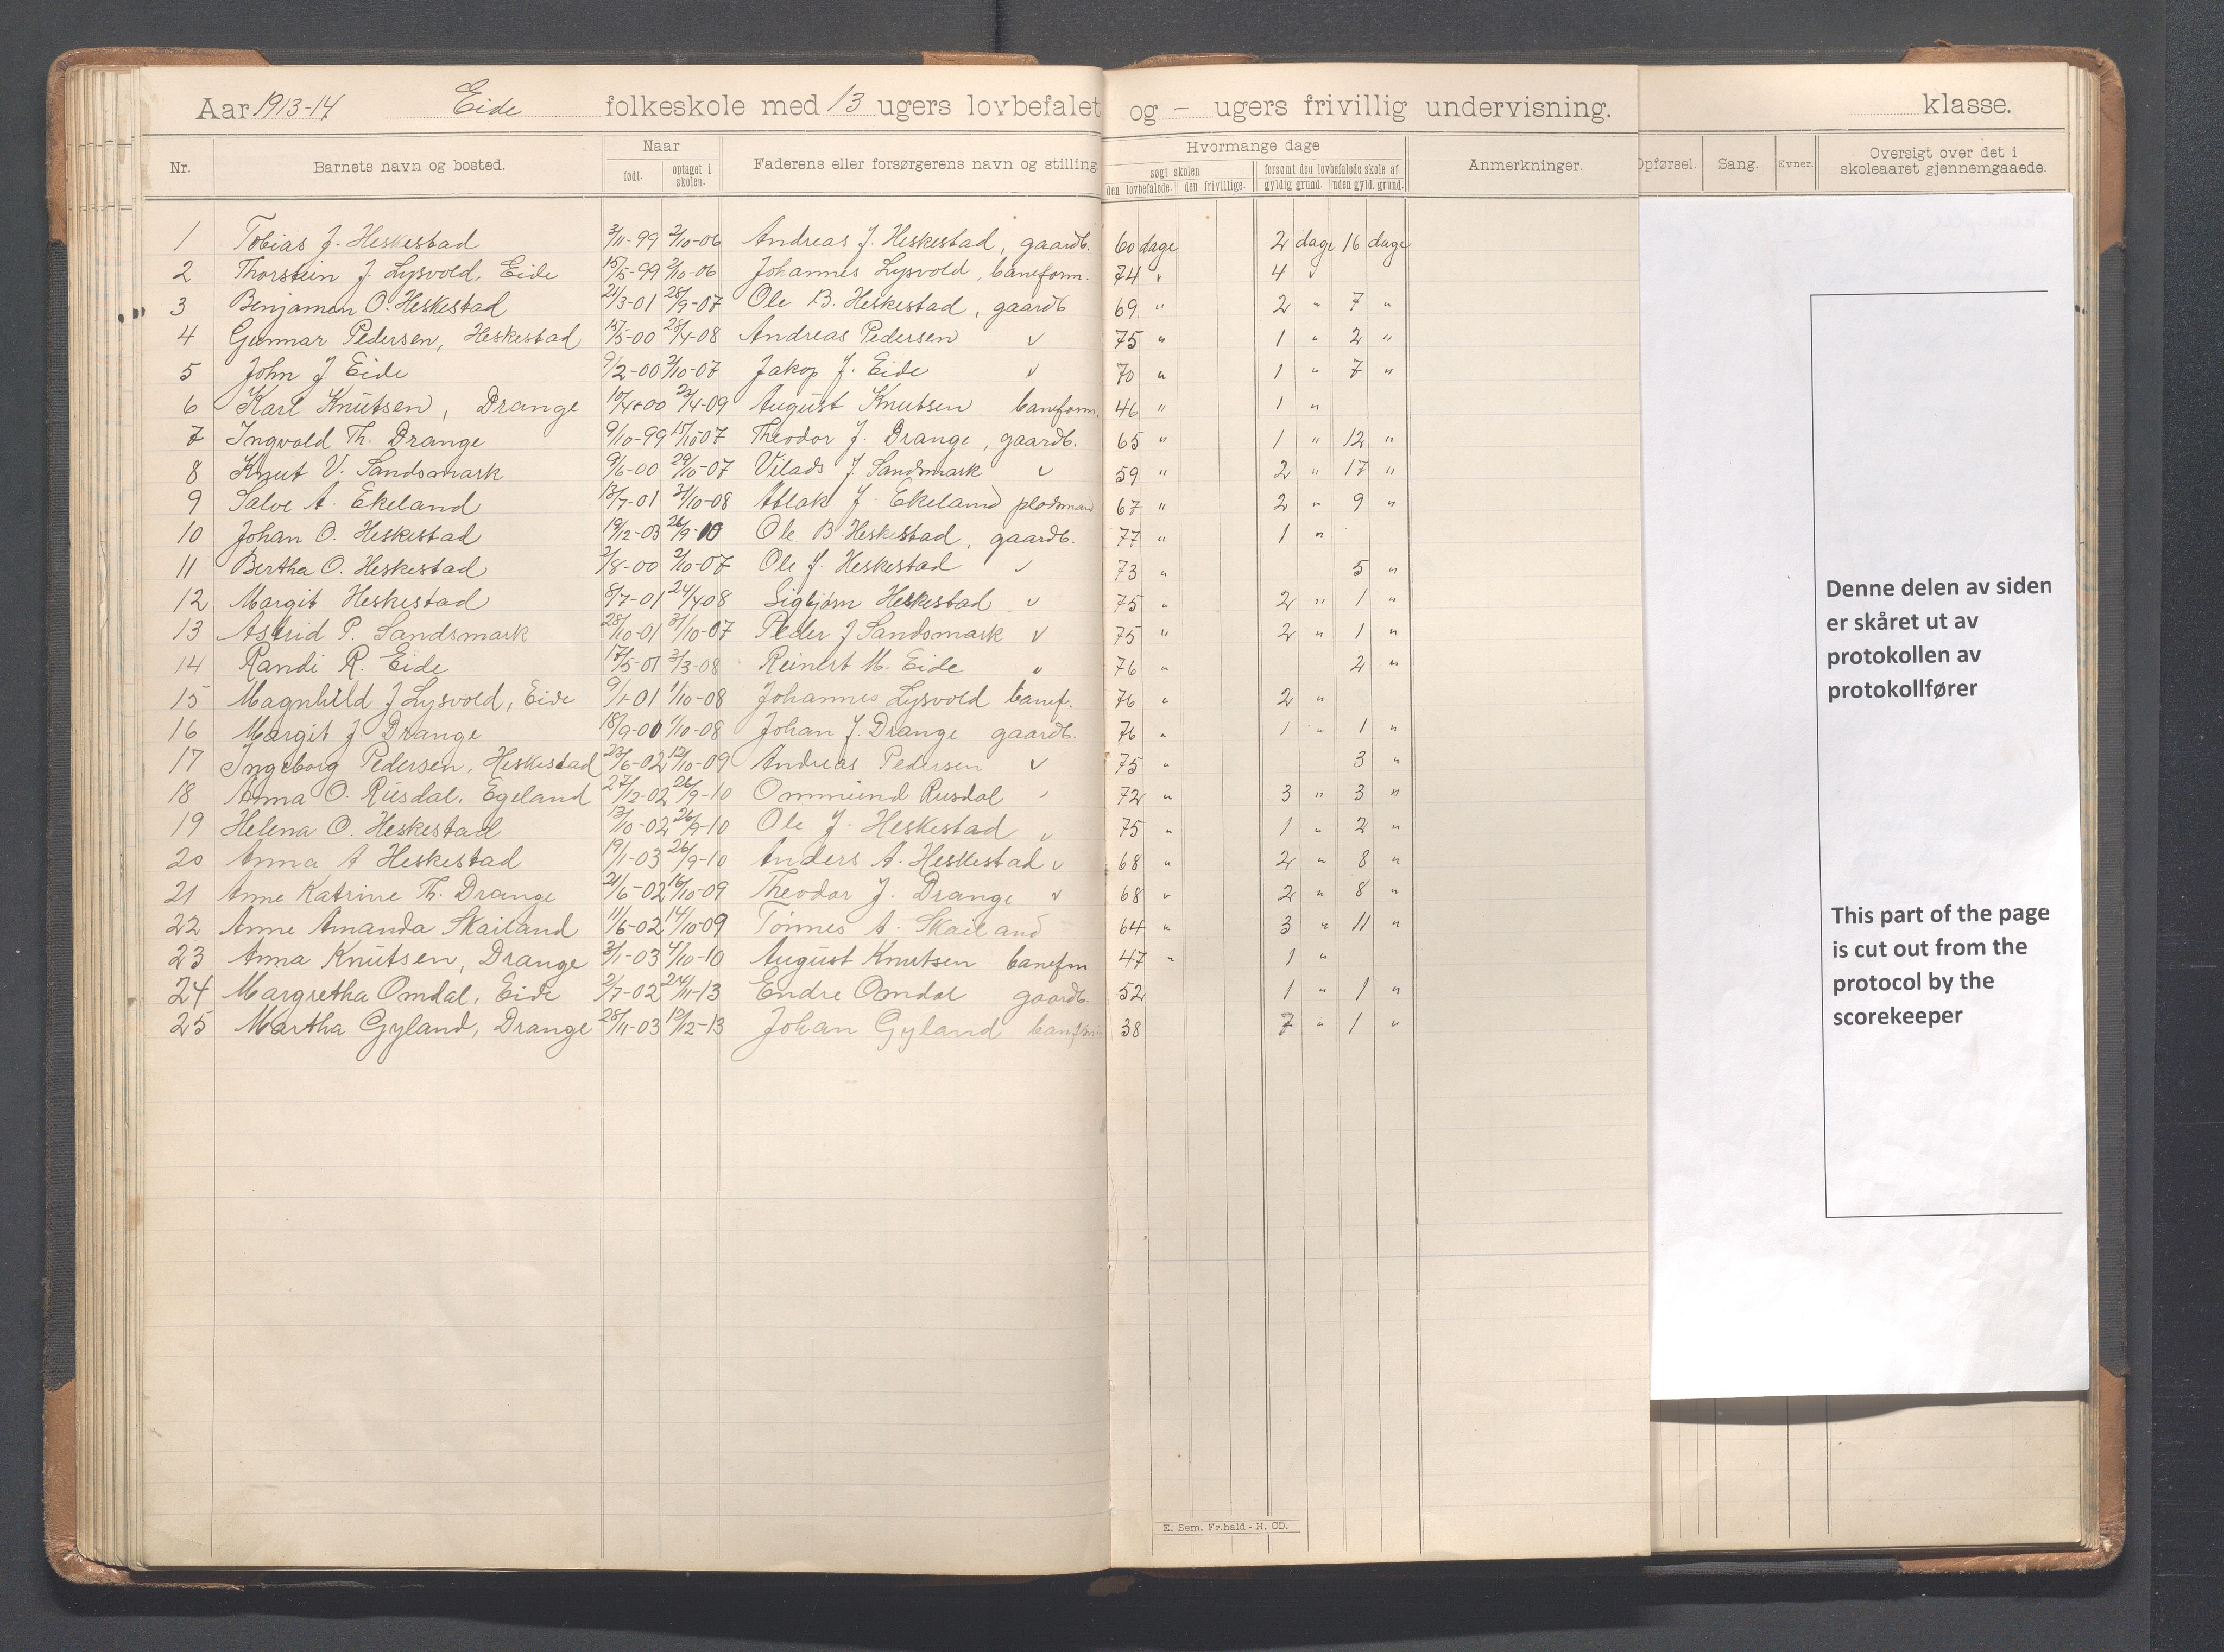 Aar 1913-14 Eide folkeskole med 13 ugers lovbefalet og - ugers frivillig undervisning. klasse.
Nr. Barnets navn og bosted. Naar født. optaget i skolen. Faderens eller forsørgerens navn og stilling Hvormange dage søgt skolen den lovbefalede. den frivillige. forsømt den lovbefalede skole af gyldig grund. uden gyld. grund. Anmerkninger. Opførsel. Sang. Evner. Oversigt over det i skoleaaret gjennemgaaede.
1 Tobias J. Heskestad 3/11-99 2/10-06 Andreas J. Heskestad, gaardb. 60 dage 2 dage 16 dage
2 Thorstein J. Lysvold, Eide 15/5-99 2/10-06 Johannes Lysvold, baneform. 74 " 4 "
3 Benjamen O. Heskestad 21/3-01 28/9-07 Ole B. Heskestad, gaardb 69 " 2 " 7 "
4 Gunnar Pedersen, Heskestad 15/5-00 28/4-08 Andreas Pedersen " 75 " 1 " 2 "
5 John J Eide 9/2-00 2/10-07 Jakop J. Eide " 70 " 1 " 7 "
6 Karl Knutsen, Drange 10/4-00 23/4-09 August Knutsen baneform. 46 " 1 "
7 Ingvald Th. Drange 9/10-99 15/10-07 Theodor J. Drange, gaardb. 65 " 1 " 12 "
8 Knut V. Sandsmark 9/6-00 29/10-07 Vilads J. Sandsmark " 59 " 2 " 17 "
9 Salve A. Ekeland 13/7-01 21/10-08 Atlak J. Ekeland pladsmand 67 " 2 " 9 "
10 Johan O. Heskestad 19/12-03 26/9-10 Ole B. Heskestad, gaardb. 77 " 1 "
11 Bertha O. Heskestad 2/8-00 2/10-07 Ole J. Heskestad " 73 " 5 "
12 Margit Heskestad 8/7-01 24/4 08 Sigbjørn Heskestad " 75 " 2 " 1 "
13 Astrid P. Sandsmark 28/10-01 31/10-07 Peder J Sandsmark " 75 " 2 " 1 "
14 Randi R. Eide 17/5-01 3/3-08 Reinert M. Eide " 76 " 2 "
15 Magnhild J Lysvold, Eide 9/1-01 1/10-08 Johannes Lysvold banef. 76 " 2 "
16 Margit J. Drange 18/9-00 1/10-08 Johan J. Drange gaardb. 76 " 1 " 1 "
17 Ingeborg Pedersen, Heskestad 23/6-02 12/10-09 Andreas Pedersen " 75 " 3 "
18 Anna O. Rusdal, Egeland 27/12-02 26/9-10 Ommund Rusdal " 72 " 3 " 3 "
19 Helena O. Heskestad 13/10-02 26/9-10 Ole J. Heskestad " 75 " 1 " 2 "
20 Anna A Heskestad 19/1-03 26/9-10 Anders A. Heskestad " 68 " 2 " 8 "
21 Anne Katrine Th. Drange 21/6-02 16/10-09 Theodor J. Drange " 68 " 2 " 8 "
22 Anne Amanda Skailand 11/6-02 14/10-09 Tønnes A. Skailand 64 " 3 " 11 "
23 Anna Knutsen, Drange 3/1-03 4/10-10 August Knutsen banefm 47 " 1 "
24 Margretha Omdal, Eide 2/7-02 24/11-13 Endre Omdal gaardb. 52 1 " 1 "
25 Martha Gyland, Drange 28/11-03 12/12-13 Johan Gyland 38 7 " 1 "
E. Sem. Fr.hald - H. CD.
Denne delen av siden
er skåret ut av
protokollen av
protokollfører
This part of the page
is cut out from the
protocol by the
scorekeeper